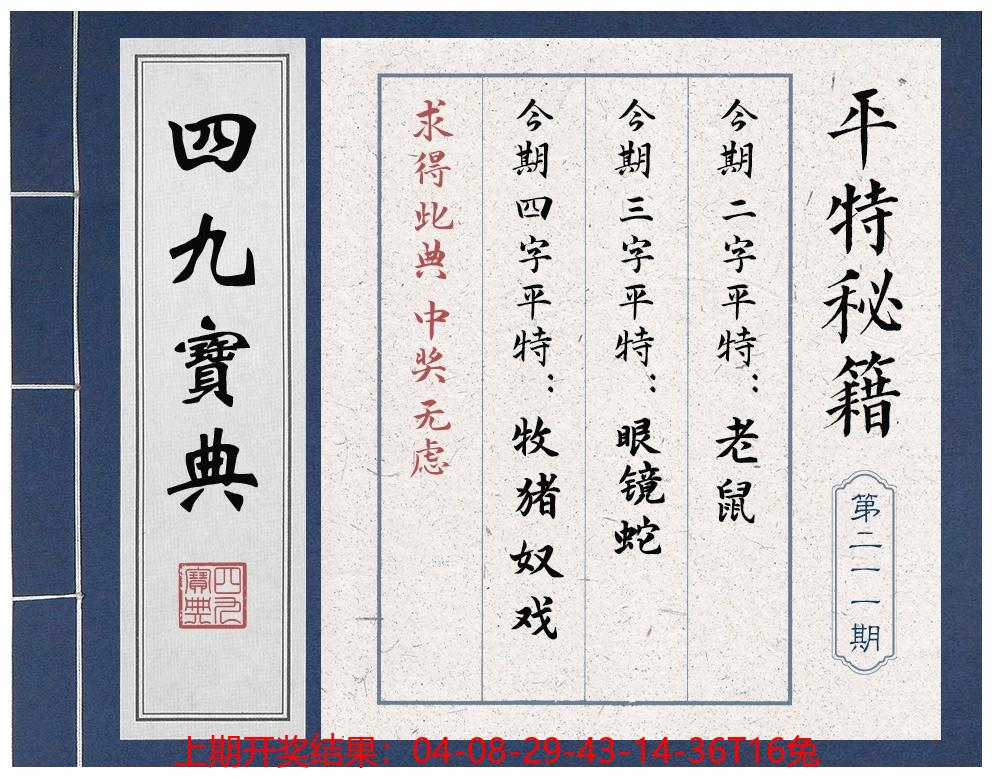 平特秘籍
第二一一期
今期二字平特：老鼠
今期三字平特：眼镜蛇
今期四字平特：牧猪奴戏
求得此典 中奖无虑
四九寶典
四九寶典
上期开奖结果：04-08-29-43-14-36T16兔